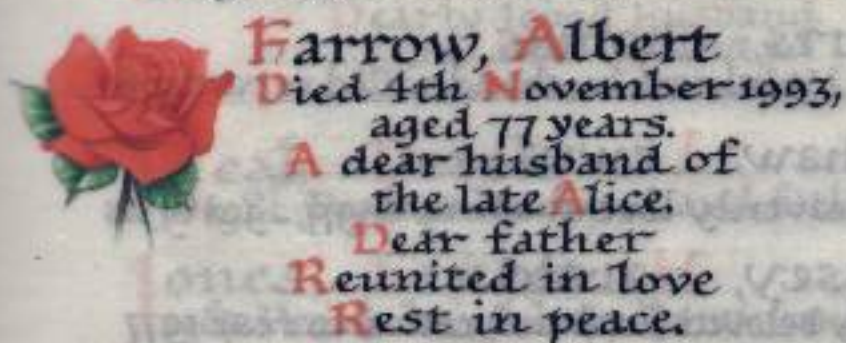 Farrow, Albert
Died 4th November 1993,
aged 77 years.
A dear husband of
the late Alice.
Dear father
Reunited in love
Rest in peace.